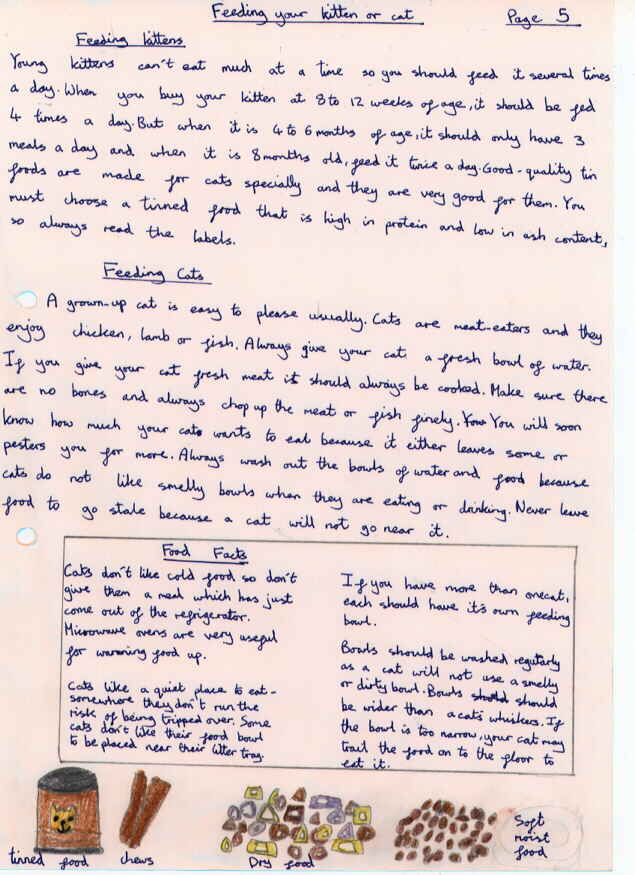 Feeding your kitten or cat
Page 5
Feeding kittens
Young kittens can't eat much at a time so you should feed it several times
a day. When you buy your kitten at 8 to 12 weeks of age, it should be fed
4 times a day. But when it is 4 to 6 months of age, it should only have 3
meals a day and when it is 8 months old, feed it twice a day. Good-quality tin
foods are made for cats specially and they are very good for them. You
must choose a tinned food that is high in protein and low in ash content,
so always read the labels.
Feeding Cats
A grown-up cat is easy to please usually. Cats are meat-eaters and they
enjoy chicken, lamb or fish. Always give your cat a fresh bowl of water.
If you give your cat fresh meat it should always be cooked. Make sure there
are no bones and always chop up the meat or fish finely. You You will soon
know how much your cat wants to eat because it either leaves some or
pesters you for more. Always wash out the bowls of water and food because
cats do not like smelly bowls when they are eating or drinking. Never leave
food to go stale because a cat will not go near it.
Food Facts
Cats don't like cold food so don't
give them a meal which has just
come out of the refrigerator.
Microwave ovens are very useful
for warming food up.
Cats like a quiet place to eat-
somewhere they don't run the
risk of being tripped over. Some
cats don't like their food bowl
to be placed near their litter tray.
If you have more than onecat,
each should have it's own feeding
bowl.
Bowls should be washed regularly
as a cat will not use a smelly
or dirty bowl. Bowls should should
be wider than a cats whiskers. If
the bowl is too narrow, your cat may
trail the food on to the floor to
eat it.
tinned food
chews
Dry food
Soft
moist
food